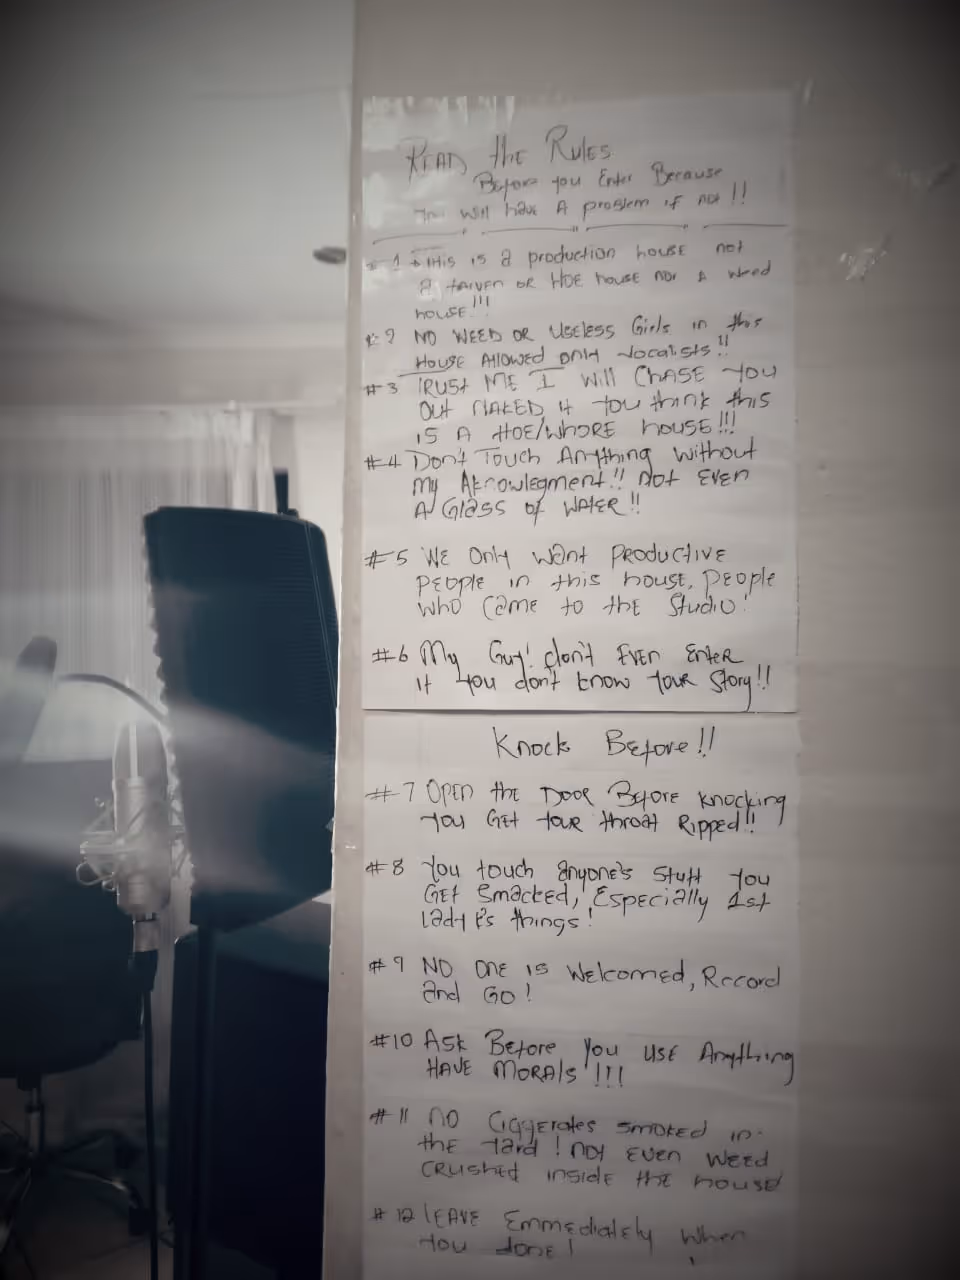 READ the RULES
Before you Enter Because
You will have A problem if not!!
#1 this is a production house not
A taiven OR HOE house nor A weed
house!!!
#2 NO WEED OR USELESS Girls in this
HOUSE Allowed only Vocalists!!
#3 TRUST ME I will CHASE YOU
OUT NAKED if YOU think this
is A HOE/WHORE house!!!
#4 Don't Touch Anything without
My Aknowlegment!! not EVEN
A Glass of WATER!!
#5 WE Only want PRODUCTIVE
PEOPLE in this house, people
WHO came to the Studio!
#6 My Guy! don't EVEN Enter
if you don't know your Story!!
Knock Before!!
#7 OPEN the DOOR Before knocking
you GET your throat Ripped!!
#8 You touch anyone's stuff you
GET Smacked, Especially 1st
Lady's things!
#9 NO ONE is Welcomed, Record
and GO!
#10 ASK Before you USE Anything
HAVE MORALS!!!
#11 NO Ciggerates smoked in
the yard! not EVEN WEED
CRUSHED inside the house
#12 LEAVE Emmediately when
you done!